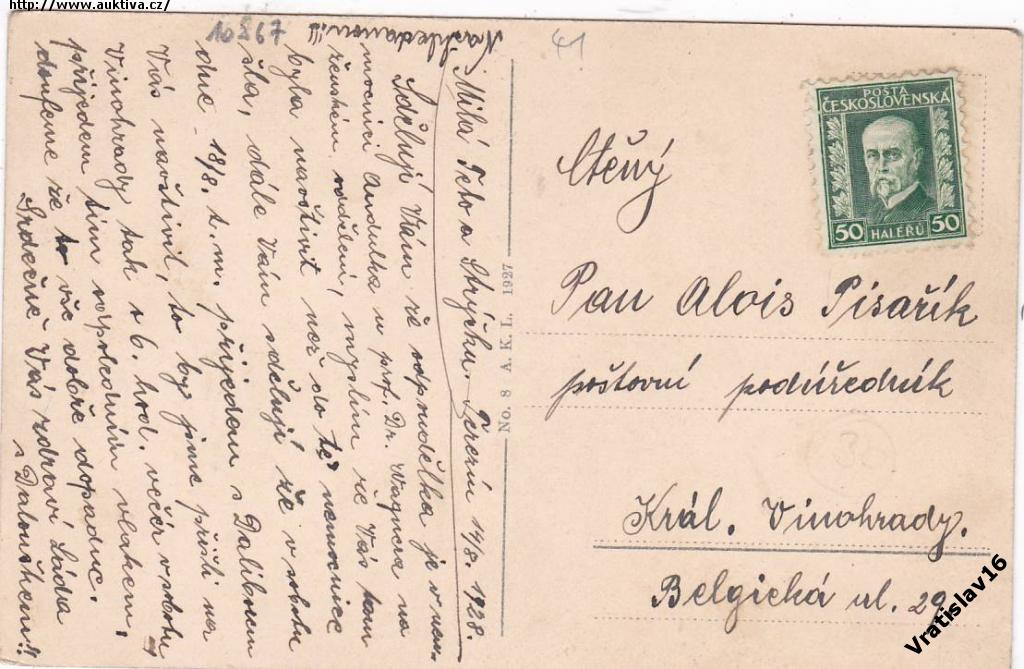 http://www.auktiva.cz/
10867
41
Nashledanou!!!
Milá Teto a Strýčku. Terezín 14/8. 1928.
Sděluji Vám že odpondělka je v nemocnici Andulka u prof. Dr. Wagnera na
ženském oddělení, myslím že Vás tam
byla navštívit než do té nemocnice
šla, dále Vám sděluji že v sobotu
dne 18/8. t.m. přijedem s Daliborem
Vás navštívit, to by jsme přišli na
Vinohrady tak v 6. hod. večer v sobotu
přijedem tím odpoledním vlakem,
doufáme že vše dobře dopadne.
Srdečně Vás zdraví Láda
s Daloušken!!
No. 8 A. K. L. 1927
POŠTA
ČESKOSLOVENSKÁ
50 HALÉŘŮ 50
Ctěný
Pan Alois Pisařík
poštovní podúředník
Král. Vinohrady.
Belgická ul. 29
Vratislav16